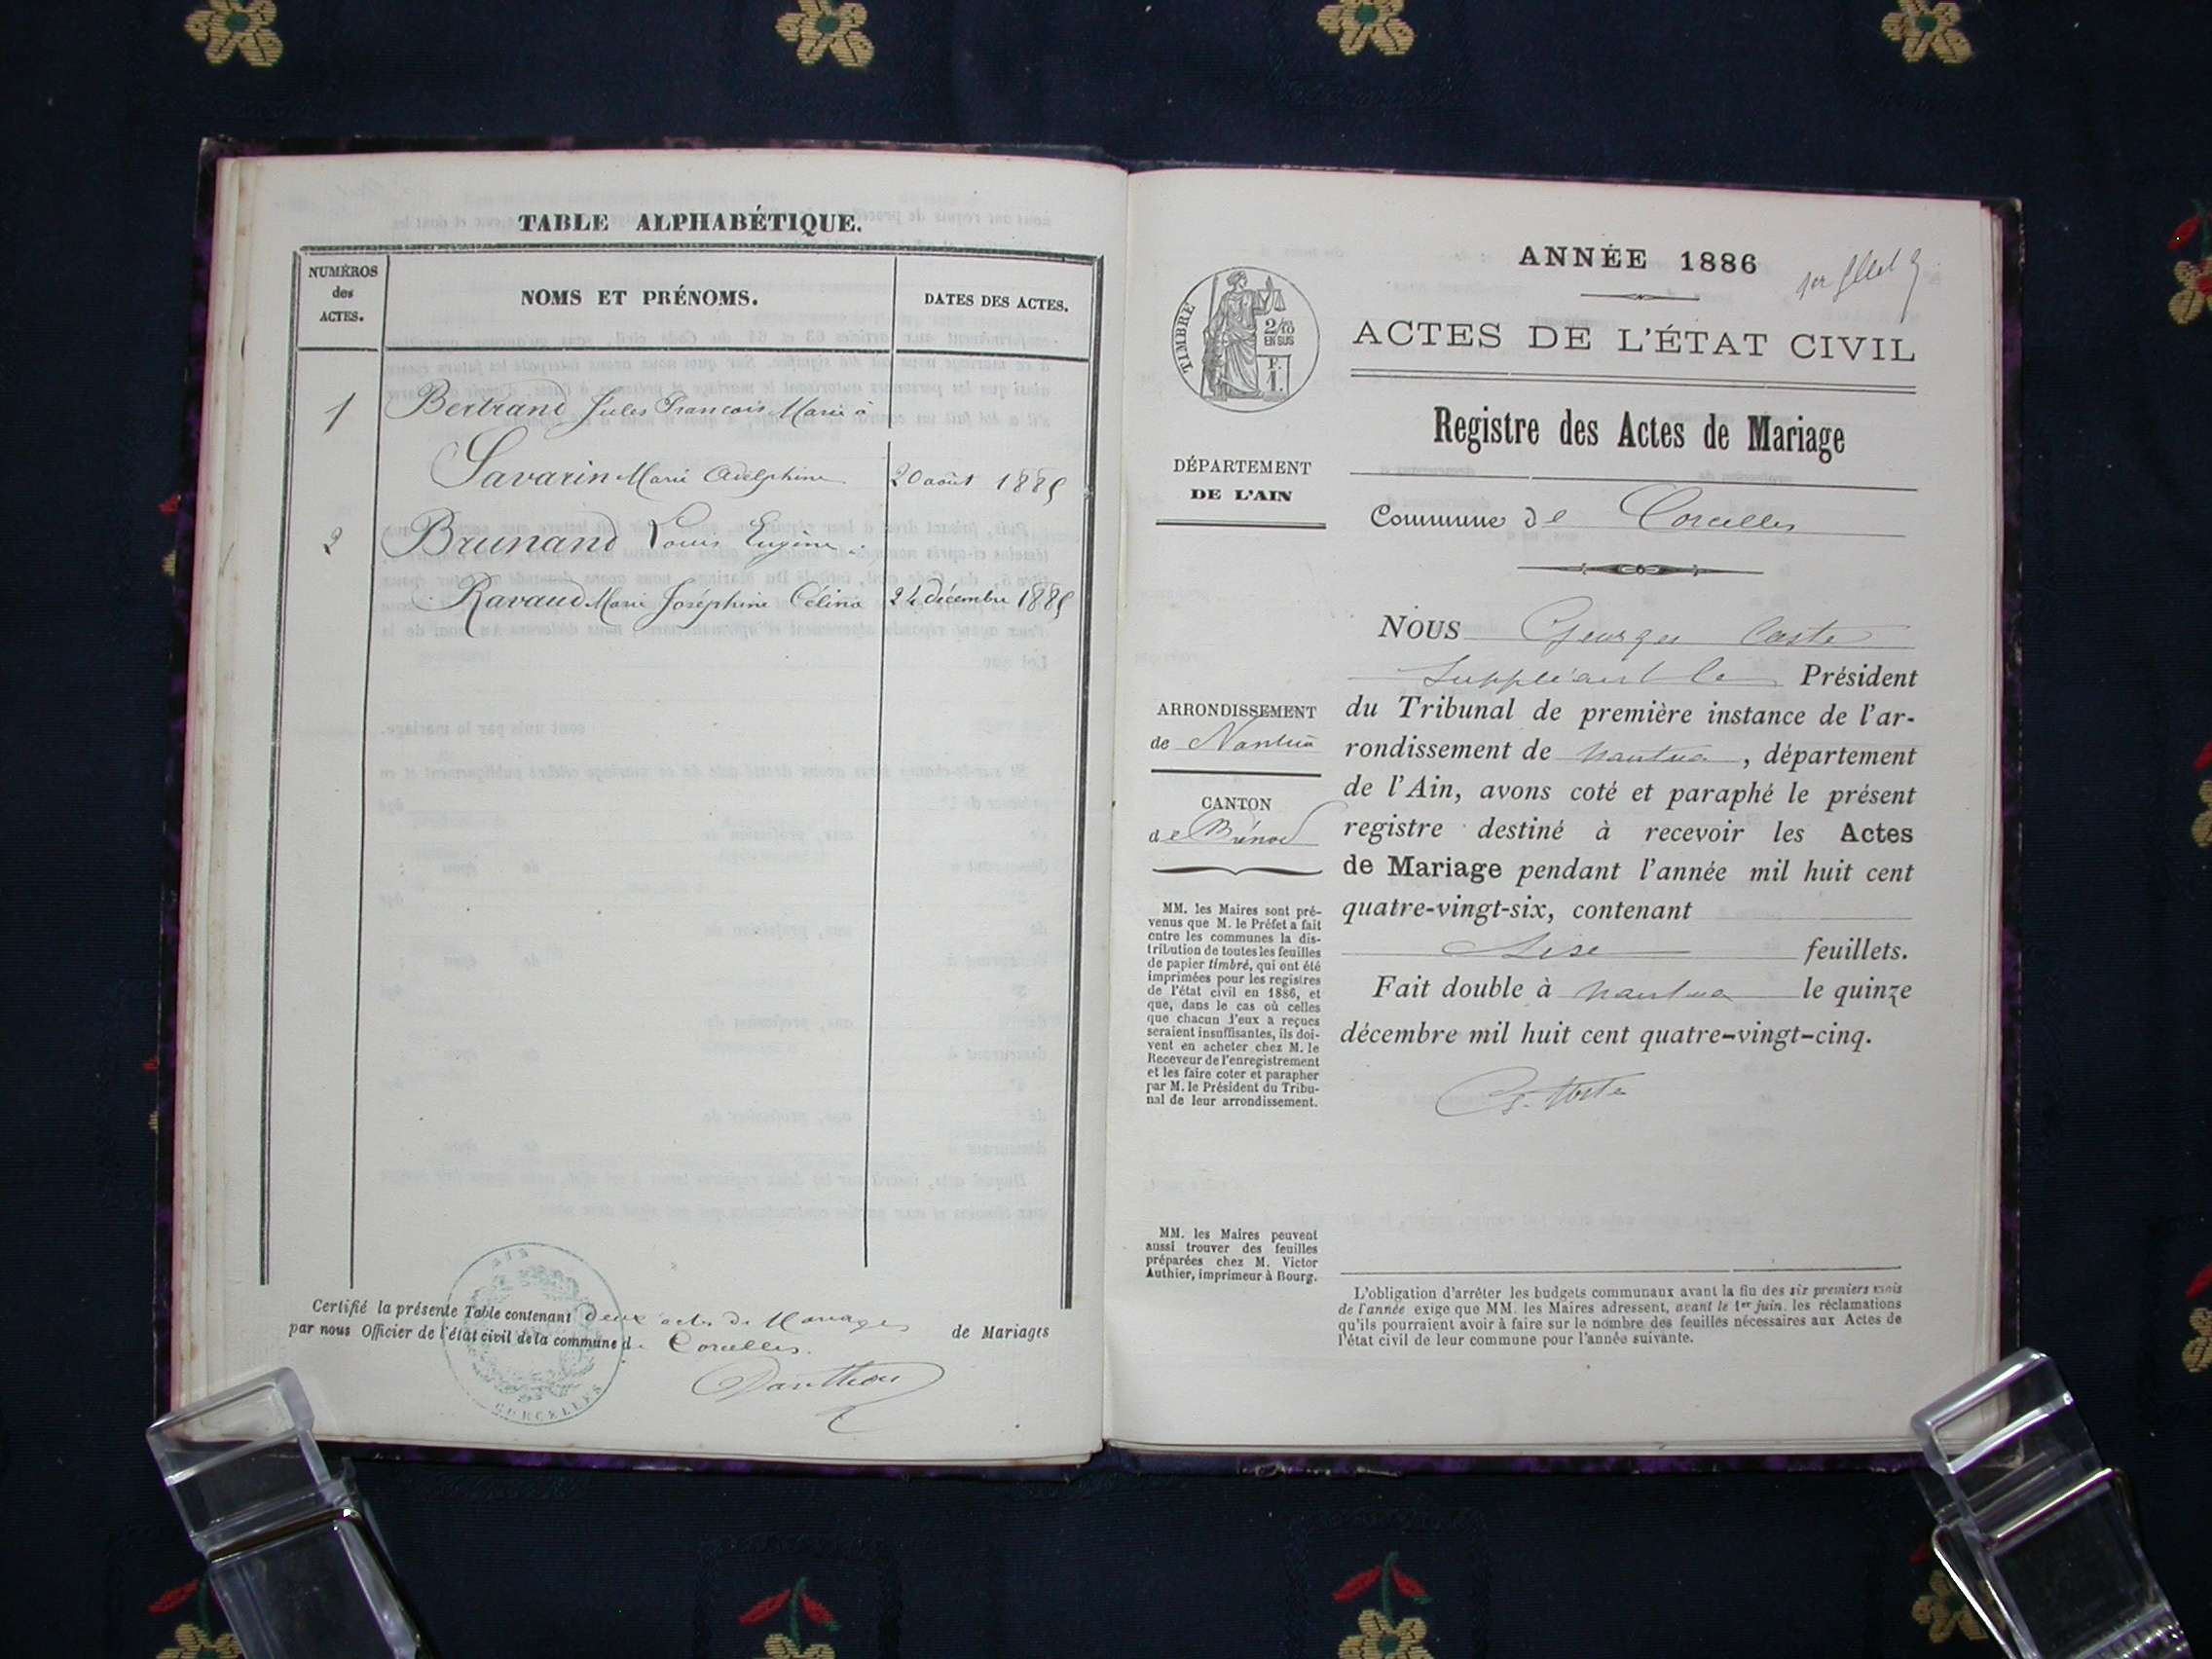 TABLE ALPHABÉTIQUE.
NUMÉROS
des
ACTES.
NOMS ET PRÉNOMS.
DATES DES ACTES.
1 Bertrand Jules Francois Marie à
Savarin Marie Adelphine 20 août 1885
2 Brunand Louis Eugène à
Ravaud Marie Joséphine Célina 24 décembre 1885
Certifié la présente Table contenant deux actes de Mariages de Mariages
par nous Officier de l'état civil de la commune de Corcelles.
CORCELLES
ANNÉE 1886
1er
TIMBRE
2/10
EN SUS
F.
1.
ACTES DE L'ÉTAT CIVIL
Registre des Actes de Mariage
DÉPARTEMENT
DE L'AIN
Commune de Corcelles
NOUS Georges Coste
Suppléant le Président
du Tribunal de première instance de l'ar-
rondissement de Nantua, département
de l'Ain, avons coté et paraphé le présent
registre destiné à recevoir les Actes
de Mariage pendant l'année mil huit cent
quatre-vingt-six, contenant
feuillets.
Fait double à Nantua le quinze
décembre mil huit cent quatre-vingt-cinq.
G. Coste
ARRONDISSEMENT
de Nantua
CANTON
de Brénod
MM. les Maires sont pré-
venus que M. le Préfet a fait
entre les communes la dis-
tribution de toutes les feuilles
de papier timbré, qui ont été
imprimées pour les registres
de l'état civil en 1886, et
que, dans le cas où celles
que chacun d'eux a reçues
seraient insuffisantes, ils doi-
vent en acheter chez M. le
Receveur de l'enregistrement
et les faire coter et parapher
par M. le Président du Tribu-
nal de leur arrondissement.
MM. les Maires peuvent
aussi trouver des feuilles
préparées chez M. Victor
Authier, imprimeur à Bourg.
L'obligation d'arrêter les budgets communaux avant la fin des six premiers mois
de l'année exige que MM. les Maires adressent, avant le 1er juin, les réclamations
qu'ils pourraient avoir à faire sur le nombre des feuilles nécessaires aux Actes de
l'état civil de leur commune pour l'année suivante.